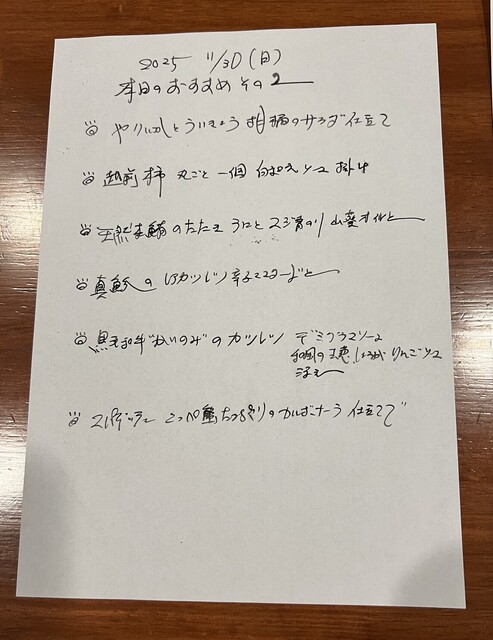 2025 11/30(日)
本日のおすすめ その2
やりいかとういきょう 柑橘のサラダ仕立て
越前柿 丸ごと一個 白和えソース 掛け
天然本鮪のたたき うにと スジ青のり 山葵オイルと
真鯵のレアカツレツ 辛子マスタードと
黒毛和牛"かいのみ"のカツレツ デミグラスソース
りんごソース
添え
スパゲッティ こっぺ蟹たっぷりのカルボナーラ 仕立てで